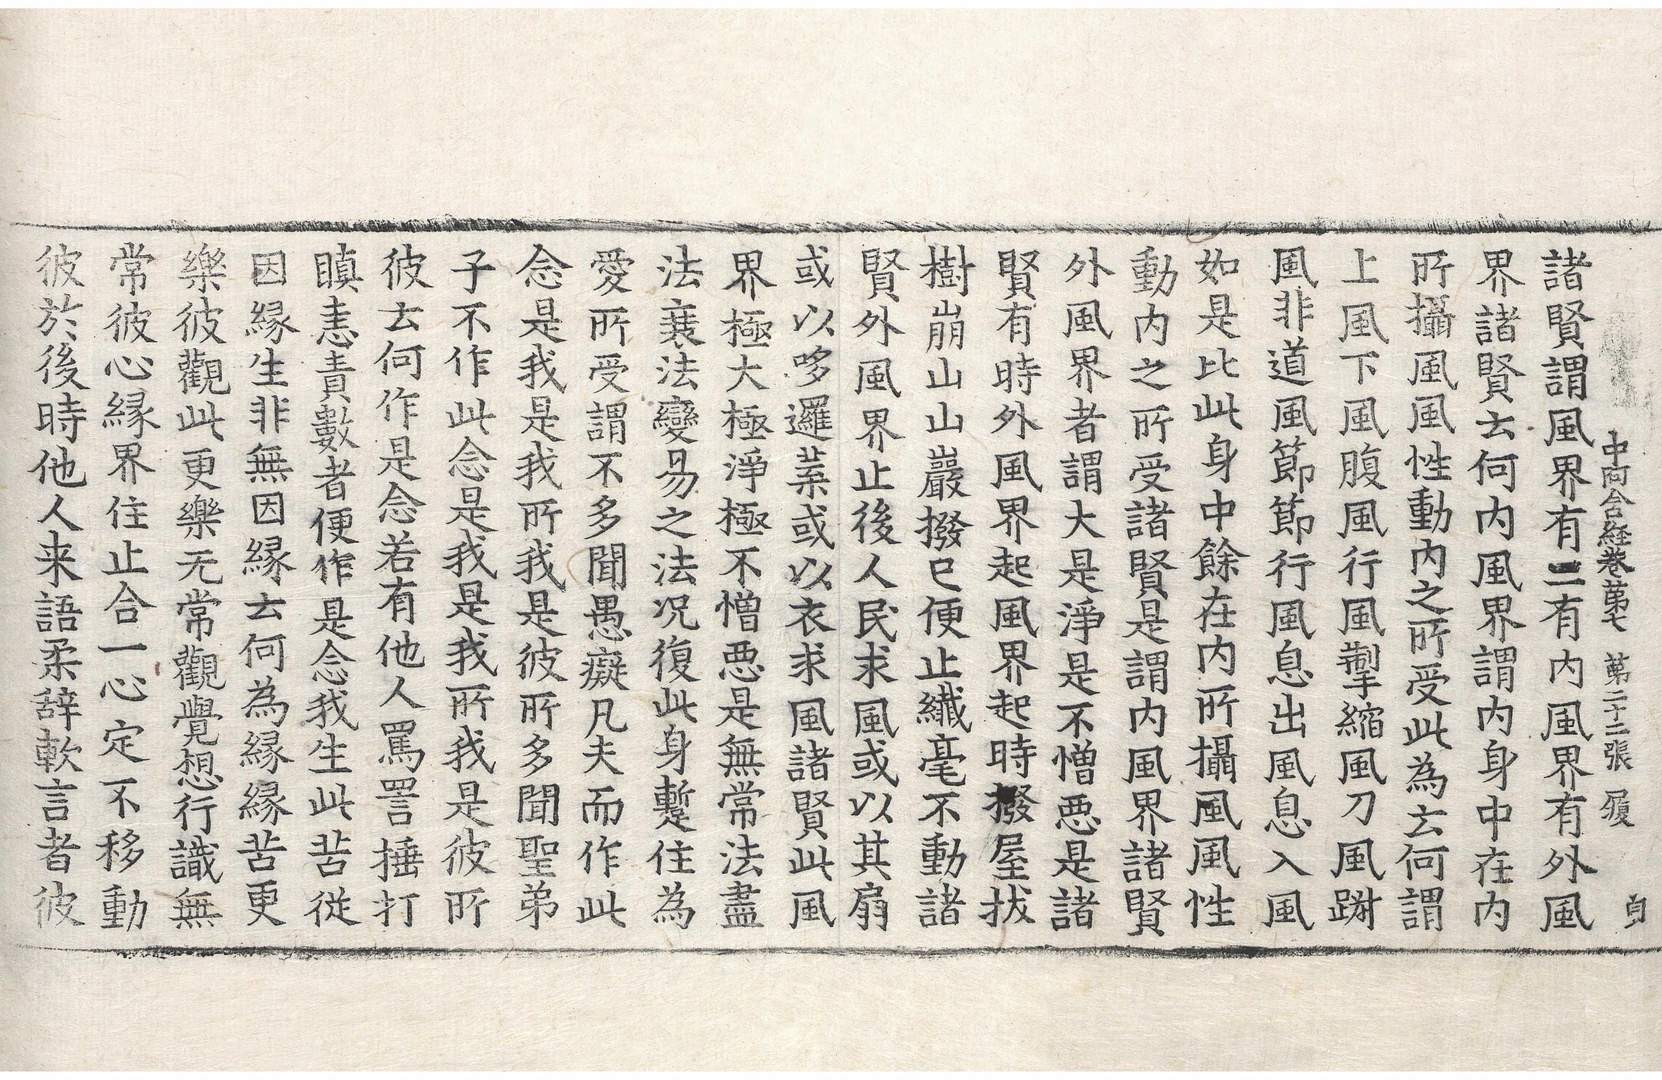 中阿含経卷苐七　苐二十二張　履
諸賢謂風界有二有內風界有外風
界諸賢云何內風界謂內身中在內
所攝風風性動內之所受此為云何謂
上風下風腹風行風掣縮風刀風躃
風非道風節節行風息出風息入風
如是比此身中餘在內所攝風風性
動內之所受諸賢是謂內風界諸賢
外風界者謂大是淨是不憎惡是諸
賢有時外風界起風界起時撥屋拔
樹崩山山巖撥已便止纖毫不動諸
賢外風界止後人民求風或以其扇
或以哆邏葉或以衣求風諸賢此風
界極大極淨極不憎惡是無常法盡
法衰法變易之法况復此身蹔住為
愛所受謂不多聞愚癡凡夫而作此
念是我是我所我是彼所多聞聖弟
子不作此念是我是我所我是彼所
彼云何作是念若有他人罵詈捶打
瞋恚責數者便作是念我生此苦從
因緣生非無因緣云何為緣緣苦更
樂彼觀此更樂无常觀覺想行識無
常彼心緣界住止合一心定不移動
彼於後時他人来語柔辞軟言者彼